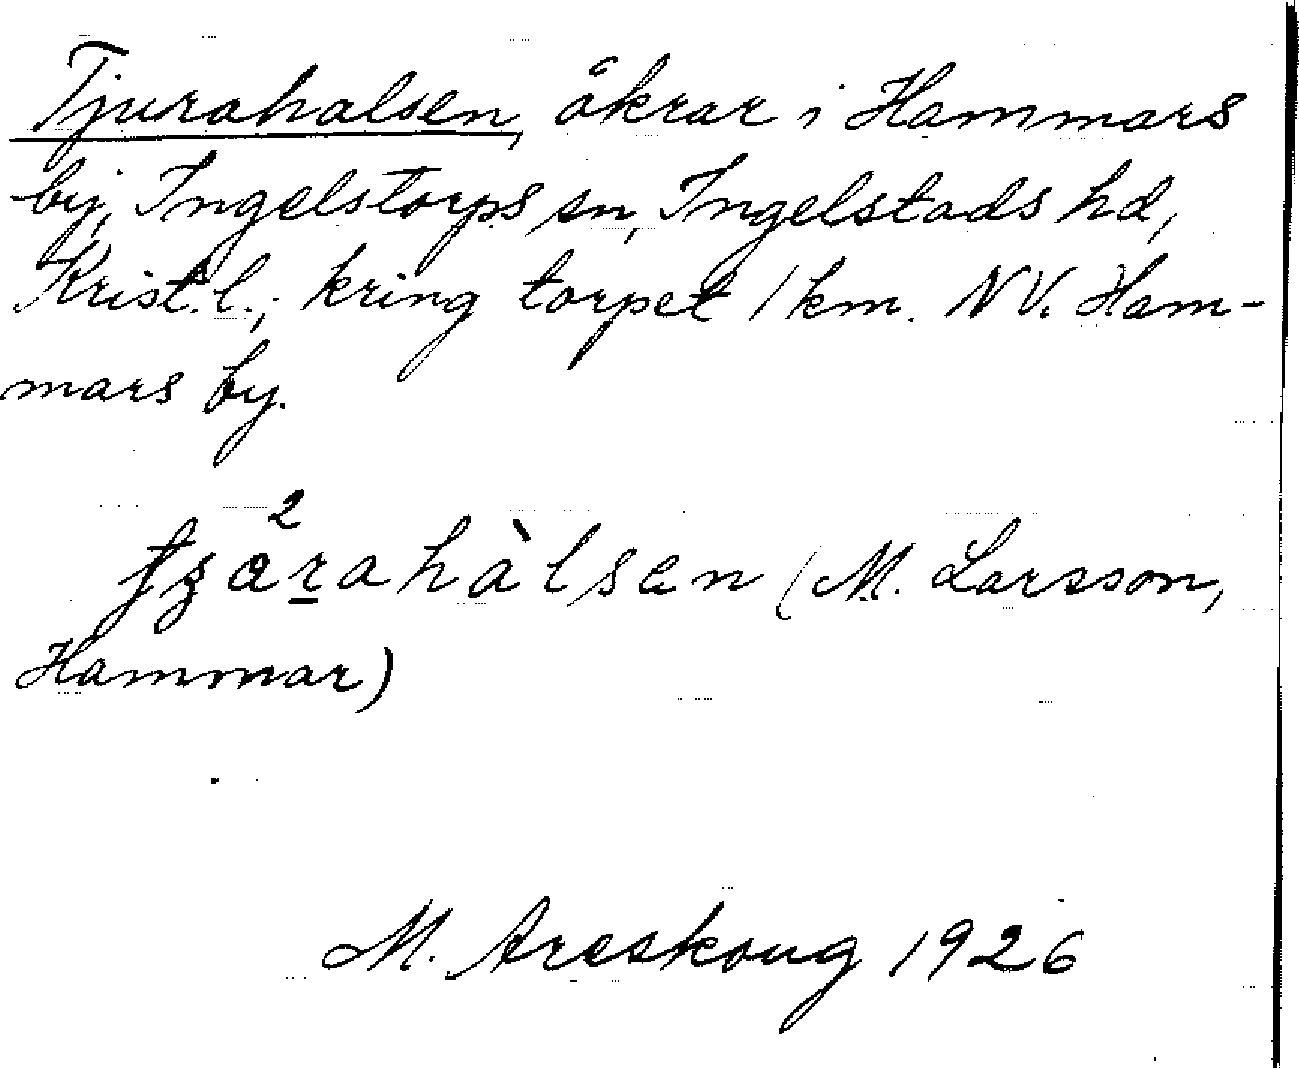 Tjurahalsen, åkrar i Hammars
by, Ingelstorps sn, Ingelstads hd,
Krist. l.; kring torpet 1 km. NV. Ham-
mars by.
(M. Larsson,
Hammar)
M. Areskoug 1926